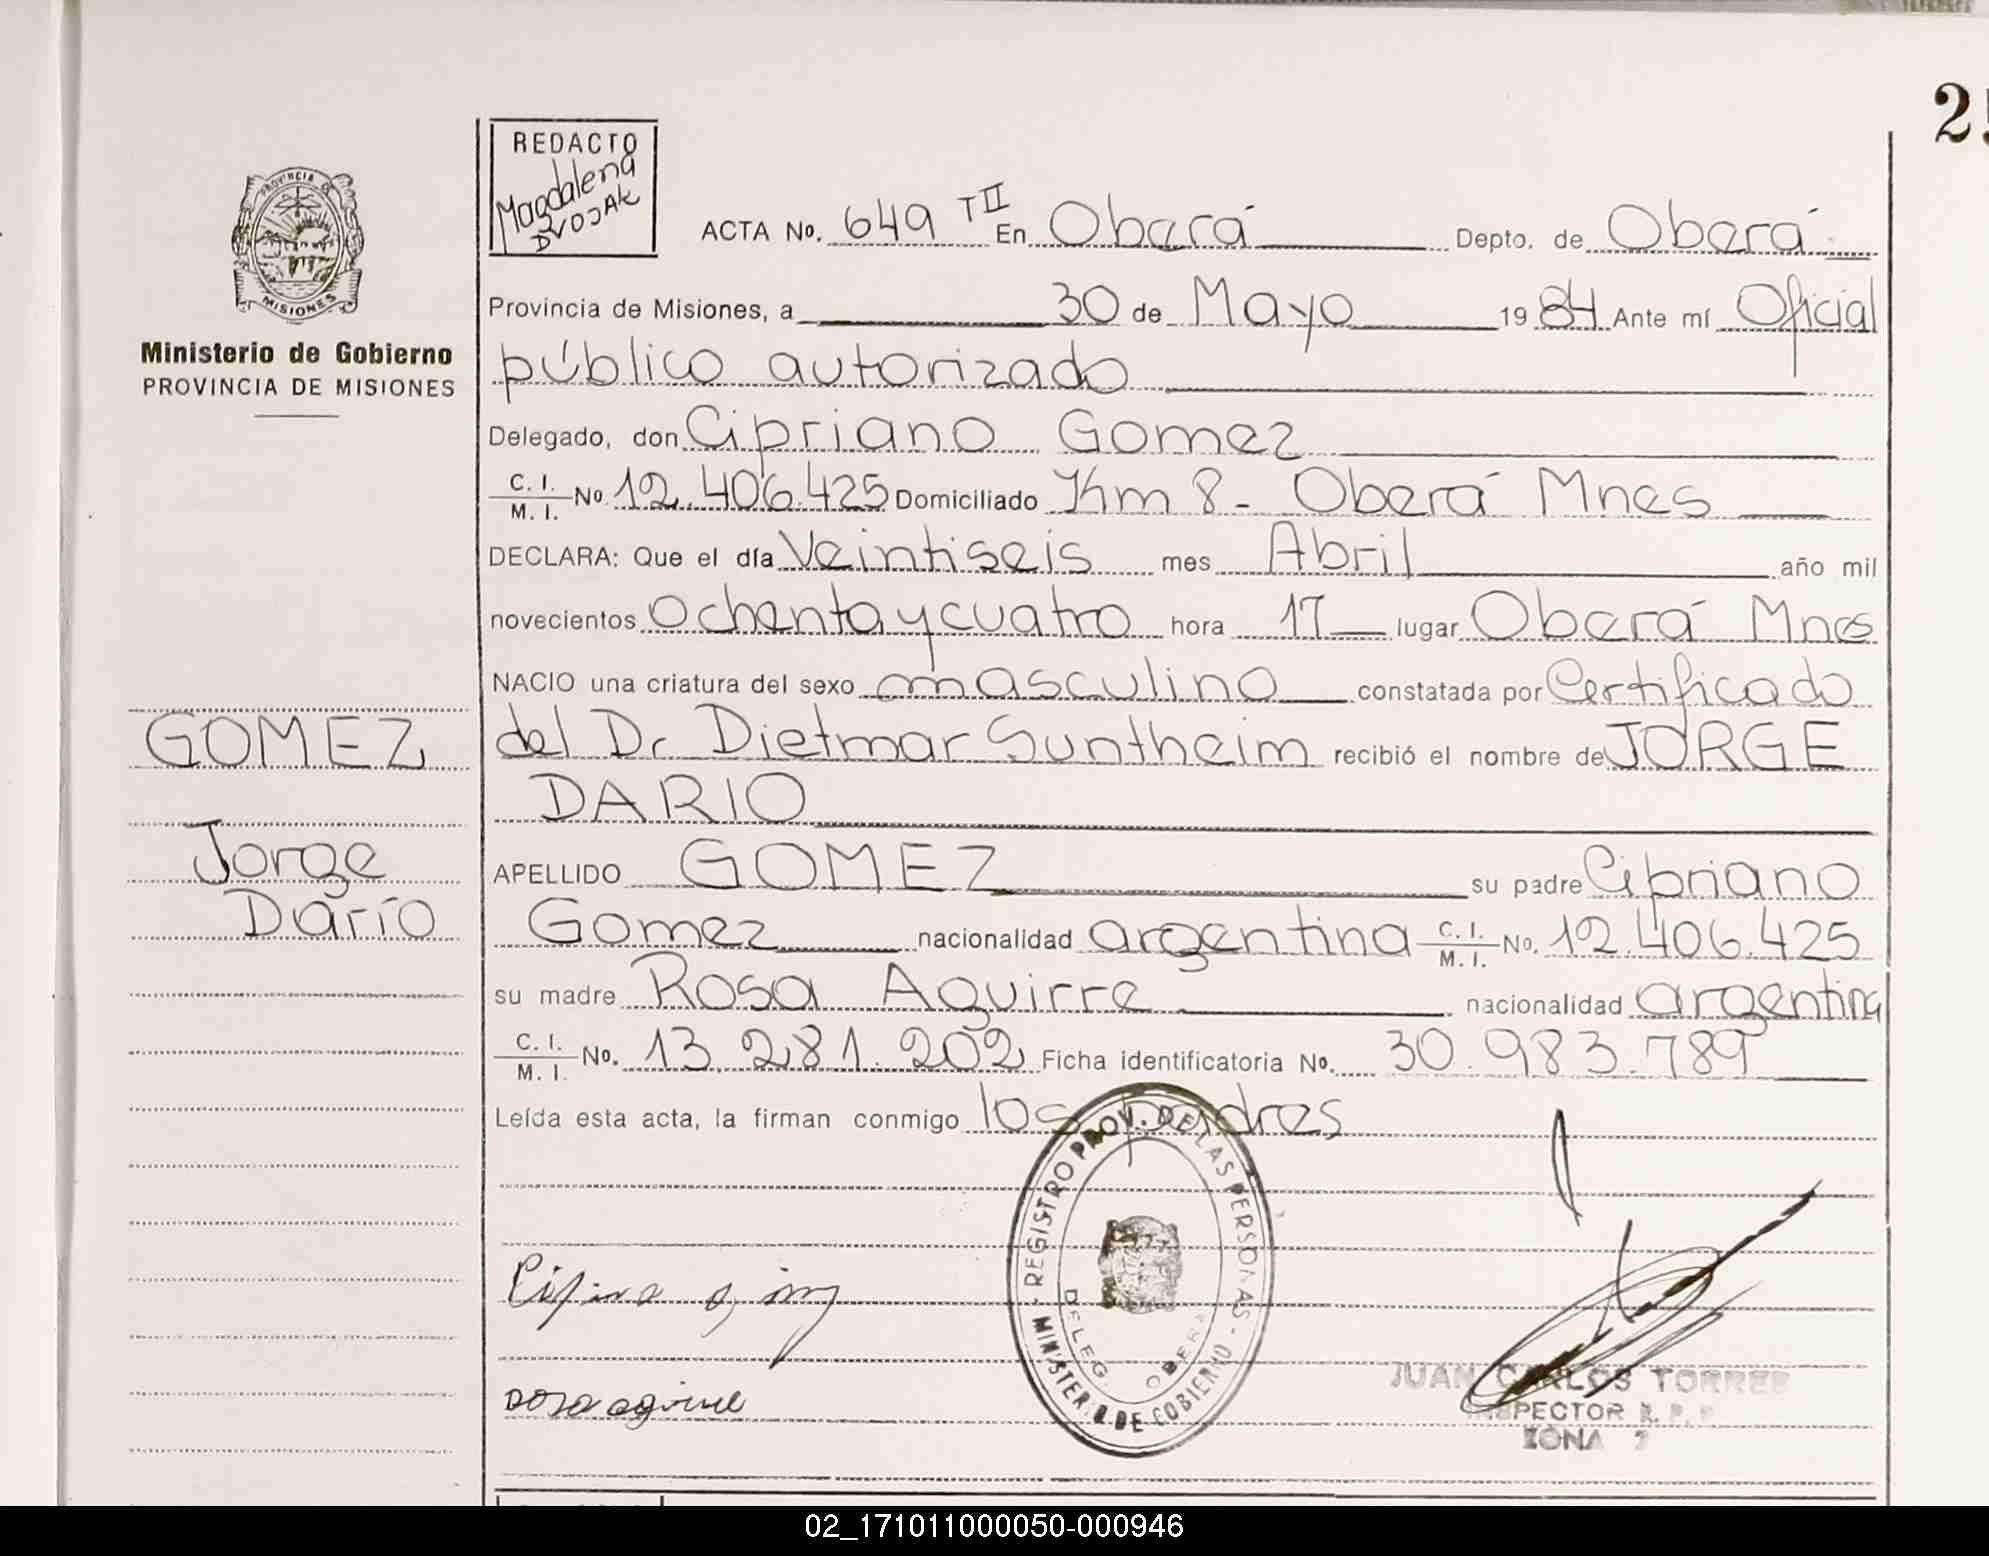 REDACTO
Magdalena
DVOJAK
25
ACTA No. 649 T II En Oberá Depto. de Oberá
Provincia de Misiones, a 30 de Mayo 1984 Ante mí Oficial
público autorizado
Delegado, don Cipriano Gomez
C. I. / M. I. No. 12.406.425 Domiciliado Km 8 - Oberá Mnes
DECLARA: Que el día Veintiseis mes Abril año mil
novecientos ochenta y cuatro hora 17 lugar Oberá Mnes
NACIO una criatura del sexo masculino constatada por Certificado
del Dr Dietmar Suntheim recibió el nombre de JORGE
DARIO
APELLIDO GOMEZ su padre Cipriano
Gomez nacionalidad argentina C. I. / M. I. No. 12.406.425
su madre Rosa Aguirre nacionalidad argentina
C. I. / M. I. No. 13.281.202 Ficha identificatoria No. 30.983.789
Leída esta acta, la firman conmigo los padres
PROVINCIA DE
MISIONES
Ministerio de Gobierno
PROVINCIA DE MISIONES
GOMEZ
Jorge
Darío
REGISTRO PROV. DE LAS PERSONAS - MINISTERIO DE GOBIERNO -
DELEG. OBERA
rosa aguirre
JUAN CARLOS TORRES
INSPECTOR R. P. P.
ZONA 2
02_171011000050-000946